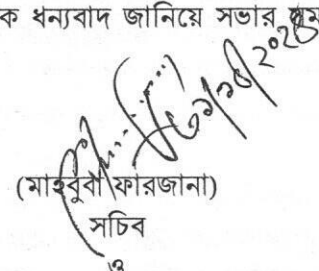 ক ধন্যবাদ জানিয়ে সভার
(মাহবুবা ফারজানা)
সচিব
ও